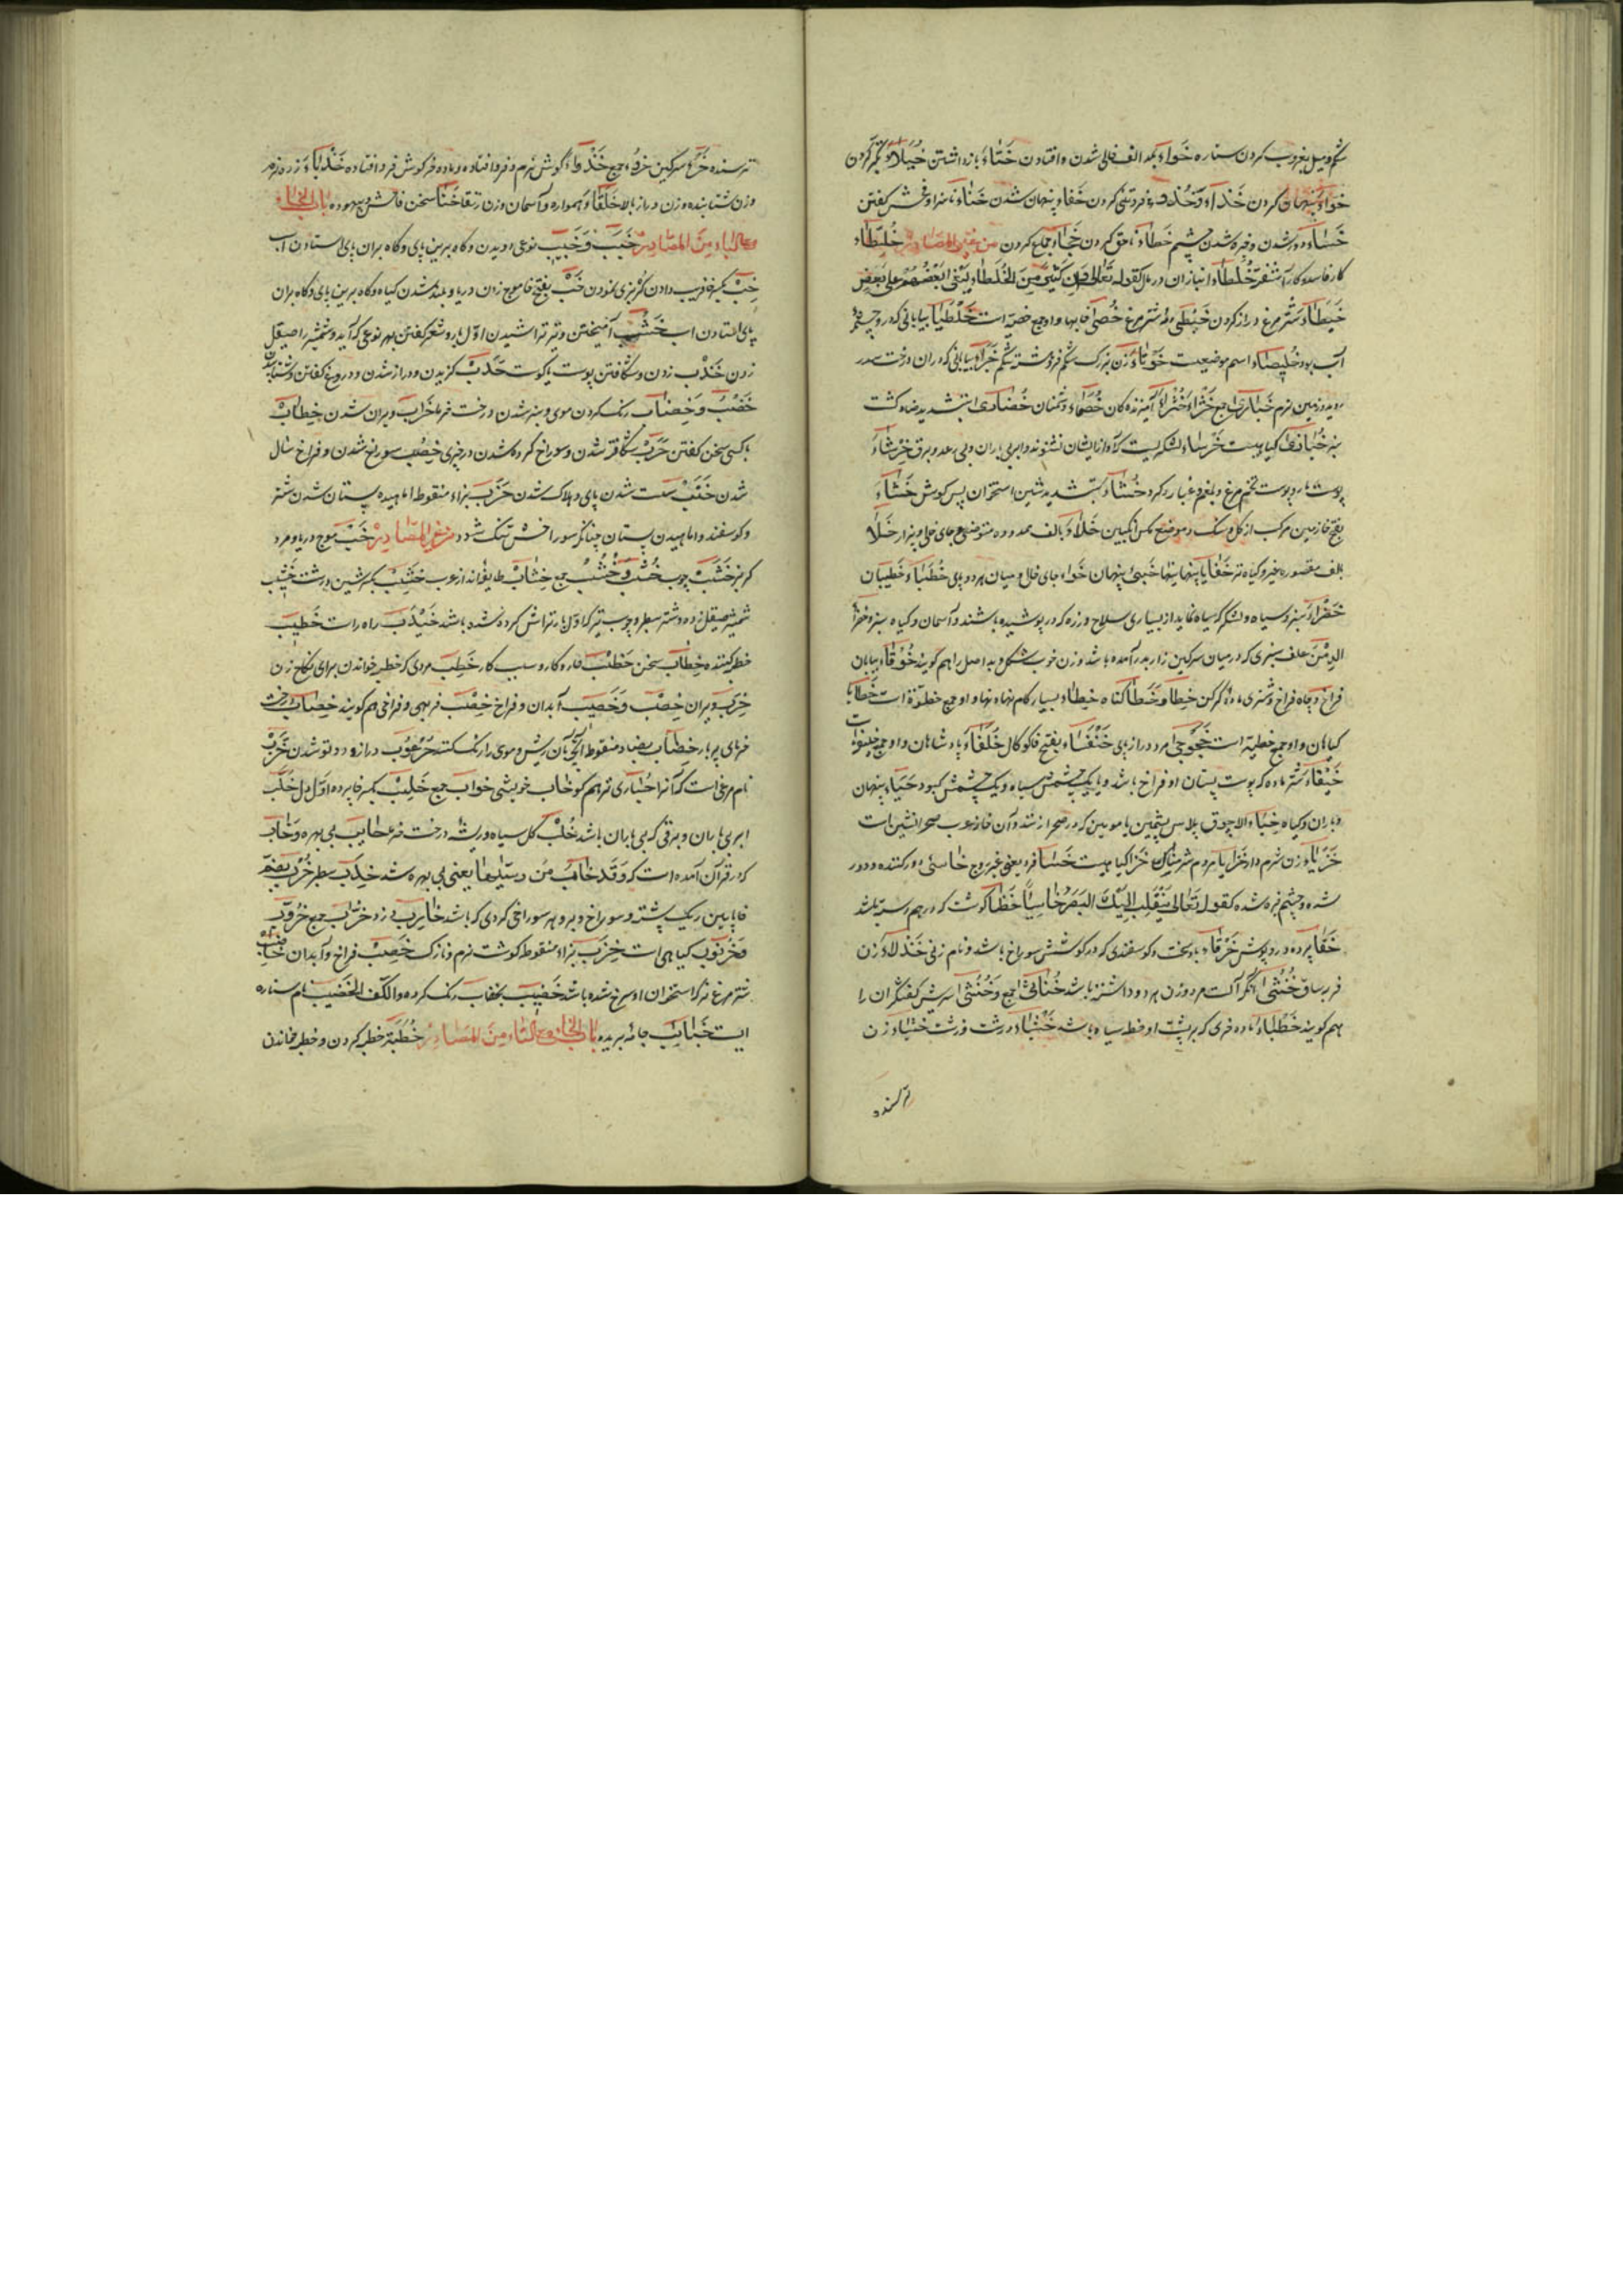 شکم و میل بغروب کردن ستاره خَوَاءٌ بمد الف خالی شدن و افتادن خَتَاءٌ بازداشتن خُیَلَاءُ تکبر کردن
خواءٌ پنهان کردن خَذَاءٌ و خُذُوءٌ فروتنی کردن خَفَاءٌ پنهان شدن خَنَاءٌ ناسزا و فحش گفتن
خَسَاءٌ دور شدن و خیره شدن چشم خطاءٌ ناحق کردن خجاءٌ جماع کردن من غیر المصادر خُلَّیْطَاءُ
کار فاسد و کار آشفته خُلَطَاءُ انبازان در مال کقوله تعالی وَاِنَّ کَثِیْرًا مِنَ الْخُلَطَاءِ لَیَبْغِیْ بَعْضُهُمْ عَلٰی بَعْضٍ
خَیْطَاءُ شترمرغ دراز گردن خَیْطٰی رمه شترمرغ خُصٰی خایها و او جمع خصیه است
آب بود خُلَیْصَاءُ اسم موضعیست خَوْثَاءُ زن بزرک شکم فروهشته شکم خَبْرَاءُ بیابانی که در آن درخت سدر
روید و زمین نرم
خُبَّازٰی کیاهیست خَرْسَاءُ لشکریست که آواز ایشان نشنوند و ابر بی باران و بی رعد و برق خِرْشَاءُ
پوست مار و پوست تخم مرغ و بلغم و غبار و گرد خُشَّاءُ بتشدید شین استخوان پس کوش خَشَاءُ
بفتح خا زمین مرکب از کل و سنک و موضع مکس انکبین خَلَاءٌ بالف ممدوده متوضع و جای خالی و بیزار خَلَا
بالف مقصوره غیر و کیاه تر خَفَایَا پنهانیها خَبِیْءٌ پنهان خَوَاء جای خالی و میان هر دو پای خُطَبَاءُ خطیبان
خَضْرَاءُ سبز و سیاه و لشکر که سیاه نماید از بسیاری سلاح و زره که در پوشیده باشند و آسمان و کیاه سبز و خضراء
الدِّمَنِ علف سبزی که در میان سرکین زار بدر آمده باشد و زن خوب شکل و بداصل را هم کویند خَوْقَاءُ بیابان
فراخ و چاه فراخ و شتری ماده کرکن خِطَاءٌ و خَطَاءٌ کناه خُطَاءٌ بسیار کام نهادنها و او جمع خطوة است خَطَایَا
کناهان و او جمع خطیئه است خَجَوْجٰی مرد دراز پای خُنْفَسَاءُ بفتح فا کوکال خُلَفَاءُ پادشاهان و او جمع خلیفه است
خَیْفَاءُ شتر ماده که پوست پستان او فراخ باشد و یا یک چشمش سیاه و یک چشمش کبود خَبَاءٌ پنهان
و باران و کیاه خِبَاءٌ الاچوق پلاس پشمین یا مویین که در صحرا زنند و آن خانه عرب صحرا نشین است
خَزْیَاءُ زن شرم دار خَزَایَا مردم شرمناک خَزَا کیاهیست خَسَا فرد یعنی غیر زوج خَاسِئٌ دور کننده و دور
شده و چشم خیره شده کقوله تَعَالٰی یَنْقَلِبْ اِلَیْکَ الْبَصَرُ خَاسِئًا خَظَا کوشت که در هم رسته باشد
خَفَا پرده و روپوش خَرْقَاءُ باد سخت و کوسفندی که در کوشش سوراخ باشد و نام زنی خَذْلَاءُ زن
فربه ساق خُنْثٰی آنکه آلت مرد و زن هر دو داشته باشد خُنَاثٰی جمع و خُنْثٰی سریش کفشکران را
هم کویند خَطْبَاءُ ماده خری که بر پشت او خط سیاه باشد خَشْنَاءُ درشت و زشت خَنْسَاءُ زن
ترسنده
ترسنده خُرْءٌ سرکین خُرُوءٌ جمع خَذْوَاءُ کوش نرم و فروافتاده و ماده خر کوش فروافتاده خَدْبَاءُ زره نرم
و زن شتابنده و زن دراز بالا خَلْقَاءُ هموار و آسمان و زن رتقا خَنَا سخن فاحش و بیهوده باب الخاء
مع الباء مِنَ المَصَادِر خَبَبٌ وَ خَبِیْبٌ نوعی دویدن و کاه برین پای و کاه بران پای استادن اسب
خِبٌّ بکسر خا فریب دادن کربزی نمودن خَبٌّ بفتح خا موج زدن دریا و بلند شدن کیاه و کاه برین پای و کاه بران
پای استادن اسب خَشْبٌ آمیختن و تیر تراشیدن اول بار و شعر گفتن بهر نوعی که آید و شمشیر را صیقل
زدن خَدْب زدن و شکافتن پوست با کوشت خَدَبٌ کزیدن و دراز شدن و دروغ کفتن و شتاب
خَضْبٌ وَ خِضَاب رنک کردن موی و سبز شدن درخت خرما خَرَاب ویران شدن خِطَابٌ
با کسی سخن کفتن خَرْبٌ شکافته شدن و سوراخ کردن خِصْبٌ سوراخ شدن و فراخ سال
شدن خَنَبٌ سست شدن پای و هلاک شدن خَزَبٌ بزاء منقوطه آماهیده پستان شدن شتر
و کوسفند و آماهیدن پستان چنانکه سوراخش تنک شود من غیر المصادر خَبٌّ موج دریا و مرد
کربز خَشَبٌ چوب خُشْبٌ وَ خُشُبٌ جمع خِشَاب طایفه اند از عرب خَشِبٌ بکسر شین درشت خَشِیْبٌ
شمشیر صیقل زده و شتر سطبر و چوب تیر که اول بار تراش کرده شده باشد خَیْدَب راه راست خَطِیْب
خطبه کننده خِطَاب سخن خَطْبٌ کار و کار و سبب کار خَطِبٌ مردی که خطبه خواندن برای نکاح زن
خَرِبٌ ویران خِصْبٌ وَ خَصِیْب آبدان و فراخ خِصْب فربهی و فراخی هم کویند خِصَاب درخت
خرمای پربار خِضَاب بضاد منقوطه آنچه بآن ریش و موی را رنک کنند خُرْعُوْب دراز و دوتو شدن خَرَبٌ
نام مرغی است که آنرا حُبَارٰی نر هم کو خَاب خویشی خواب جمع خِلْبٌ بکسر خا پرده اول دل خُلَّبٌ
ابر بی باران و برقی که بی باران باشد خُلْبٌ کل سیاه و ریشه درخت خرما خَائِب بی بهره و خَاب
که در قرآن آمده است که وَقَدْ خَابَ مَنْ دَسّٰیهَا یعنی بی بهره شد خِدَبٌّ سطبر خُرْبٌ بضم
خا پایین ریک پشته و سوراخ دبر و هر سوراخی کردی که باشد خَارِب دزد خُرَّاب جمع خَرُّوْب
وَخُرْنُوْب کیاهی است خَزِبٌ بزاء منقوطه کوشت نرم و نازک خَصِبٌ فراخ و آبدان خَاضِب
شترمرغ نر که استخوان او سرخ شده باشد خَضِیْب بخضاب رنک کرده وَالکَفُّ الخَضِیْب نام ستاره
ایست خَبَائِب جامه بریده باب الخاء مع التاء مِنَ المَصَادِر خُطْبَة خطبه کردن و خطبه خواندن